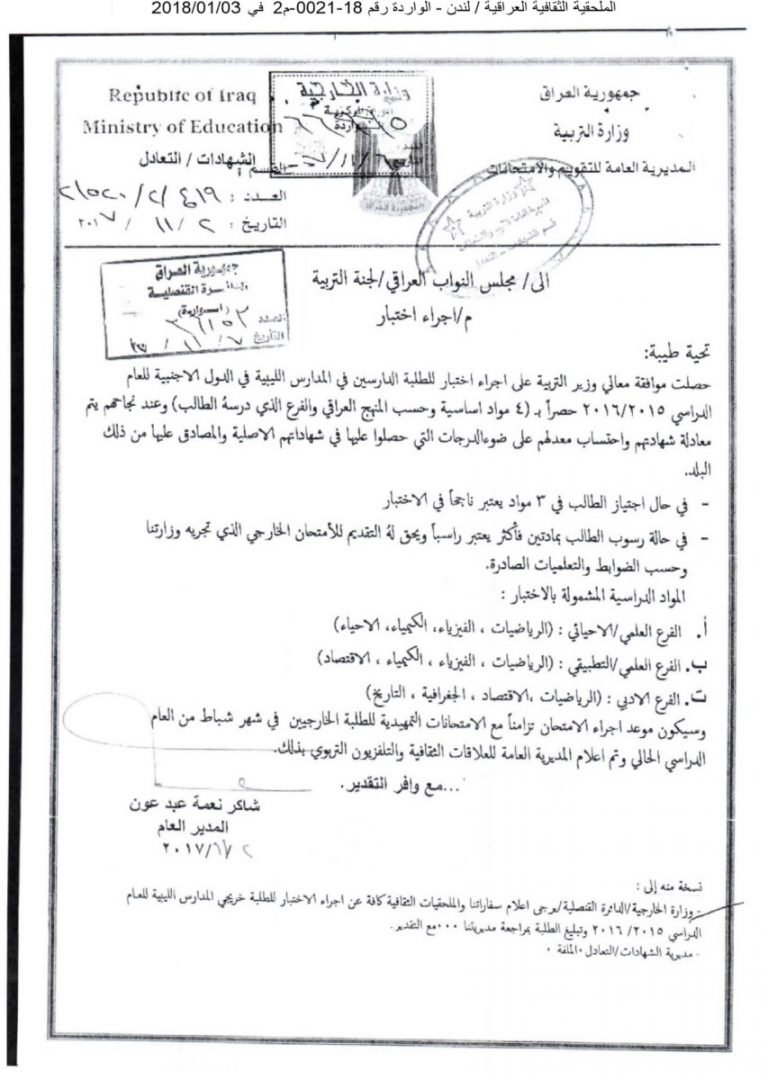 الملحقية الثقافية العراقية / لندن - الواردة رقم 18-0021-م2 في 2018/01/03
جمهورية العراق
وزارة التربية
المديرية العامة للتقويم والامتحانات
Republic of Iraq
Ministry of Education
القسم : الشهادات / التعادل
العـدد :
التاريخ : ٢ / ١١ / ٢٠١٧
وزارة الخارجية
جمهورية العراق
وزارة التربية
جمهورية العراق
الدائرة القنصلية
(الواردة)
العدد ٣٦١٥٢
التأريخ ٧ / ١١ /
الى/ مجلس النواب العراقي/لجنة التربية
م/اجراء اختبار
تحية طيبة:
حصلت موافقة معالي وزير التربية على اجراء اختبار للطلبة الدارسين في المدارس الليبية في الدول الاجنبية للعام
الدراسي ٢٠١٦/٢٠١٥ حصراً بـ (٤ مواد اساسية وحسب المنهج العراقي والفرع الذي درسهُ الطالب) وعند نجاحهم يتم
معادلة شهادتهم واحتساب معدلهم على ضوءالدرجات التي حصلوا عليها في شهاداتهم الاصلية والمصادق عليها من ذلك
البلد.
- في حال اجتياز الطالب في ٣ مواد يعتبر ناجحاً في الاختبار
- في حالة رسوب الطالب بمادتين فأكثر يعتبر راسباً ويحق لهُ التقديم للأمتحان الخارجي الذي تجريه وزارتنا
وحسب الضوابط والتعلميات الصادرة.
المواد الدراسية المشمولة بالاختبار :
أ. الفرع العلمي/الاحيائي : (الرياضيات ، الفيزياء، الكيمياء، الاحياء)
ب. الفرع العلمي/التطبيقي : (الرياضيات ، الفيزياء ، الكيمياء ، الاقتصاد)
ت. الفرع الادبي : (الرياضيات ،الاقتصاد ، الجغرافية ، التاريخ)
وسيكون موعد اجراء الامتحان تزامناً مع الامتحانات التمهيدية للطلبة الخارجيين في شهر شباط من العام
الدراسي الحالي وتم اعلام المديرية العامة للعلاقات الثقافية والتلفزيون التربوي بذلك.
...مع وافر التقدير.
شاكر نعمة عبد عون
المدير العام
نسخة منه إلى :
- وزارة الخارجية/الدائرة القنصلية/يرجى اعلام سفاراتنا والملحقيات الثقافية كافة عن اجراء الاختبار للطلبة خريجي المدارس الليبية للعام
الدراسي ٢٠١٥/ ٢٠١٦ وتبليغ الطلبة بمراجعة مديريتنا ٠٠٠مع التقدير.
- مديرية الشهادات/التعادل ٠الملفة ٠